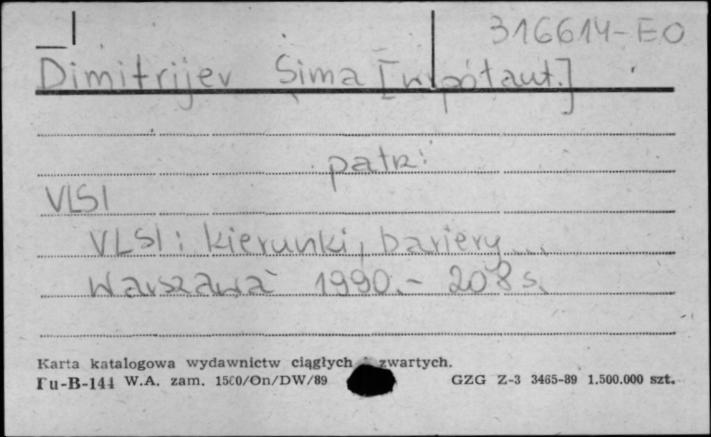 316614-EO
Dimitrijev Sima [współaut.]
patrz:
VLSI
VLSI: kierunki, bariery ...
Warszawa 1990.- 208 s.
Karta katalogowa wydawnictw ciągłych i zwartych.
Pu-B-144 W.A. zam. 1500/On/DW/89 GZG Z-3 3465-89 1.500.000 szt.